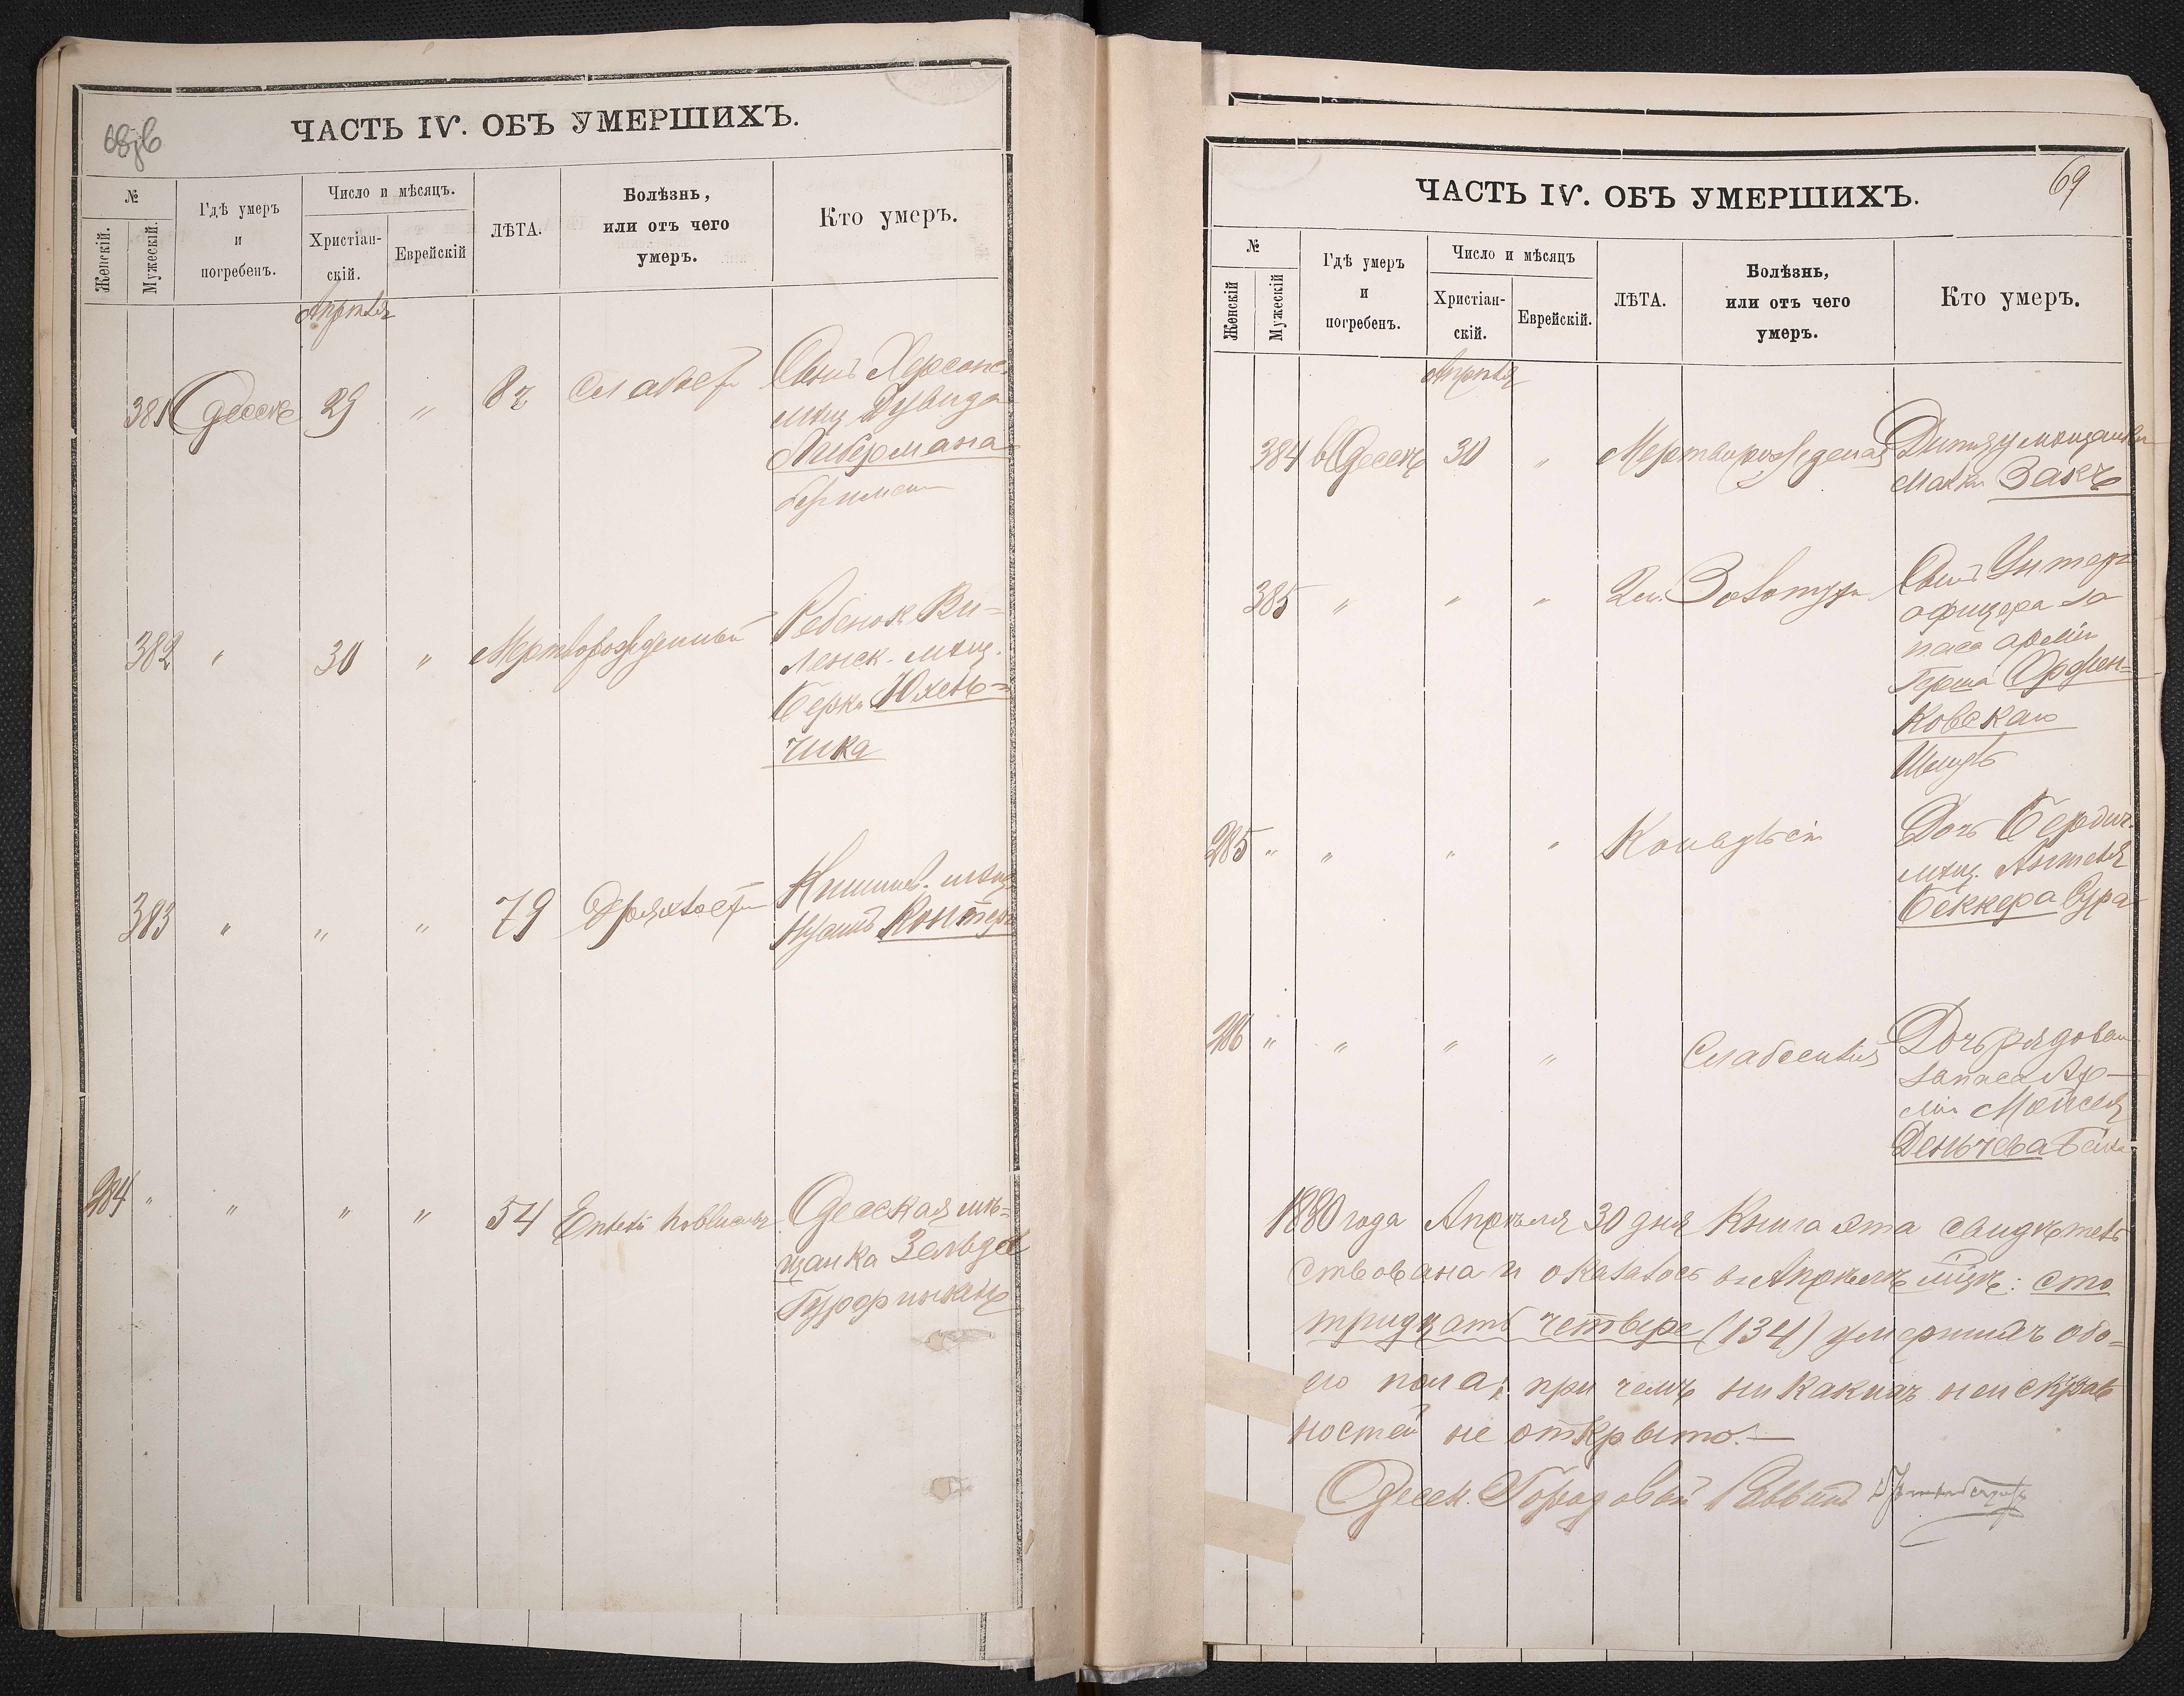 68об
ЧАСТЬ IV. ОБЪ УМЕРШИХЪ.
№
Женскій.
Мужескій.
Гдѣ умеръ
и
погребенъ.
Число и мѣсяцъ.
Христіан-
скій.
Еврейскій
ЛѢТА.
Болѣзнь,
или отъ чего
умеръ.
Кто умеръ.
Апрѣля
381 Одессѣ 29 " 82 Слабости Сынъ Херсонс.
мѣщ. Дувида
Либермана
382 " 30 " Мертворожденный Ребенок Ви-
ленск. мѣщ.
Берки Юхель-
чика
383 " " " 79 Дряхлости Кишинев. мѣщ
284 " " " " 54 Одесская мѣ-
щанка Зельда
69
ЧАСТЬ IV. ОБЪ УМЕРШИХЪ.
№
Женскій
Мужескій
Гдѣ умеръ
и
погребенъ.
Число и мѣсяцъ
Христіан-
скій.
Еврейскій.
ЛѢТА.
Болѣзнь,
или отъ чего
умеръ.
Кто умеръ.
Апрѣля
384 в Одессѣ 30 " Дитя мѣщанки
Малки Закъ
385 " " " 2 м. Золотухи Сынъ Унтеръ
офицера за
паса арміи
Герша Орфен-
ковскаго
285 " " " " Дочь Бердич.
мѣщ.
Беккера Сура
286 " " " " Слабосилія Дочь рядоваго
запаса Ар-
міи Мойсея
Деньчева
1880 года Апрѣля 30 дня Книга эта свидѣтель
ствована и оказалось въ Апрѣлѣ мцѣ: сто
тридцать четверо (134) умершихъ обо-
его пола; при чемъ никакихъ неисправ
ностей не открыто.—
Одесск. Городовой Раввинъ